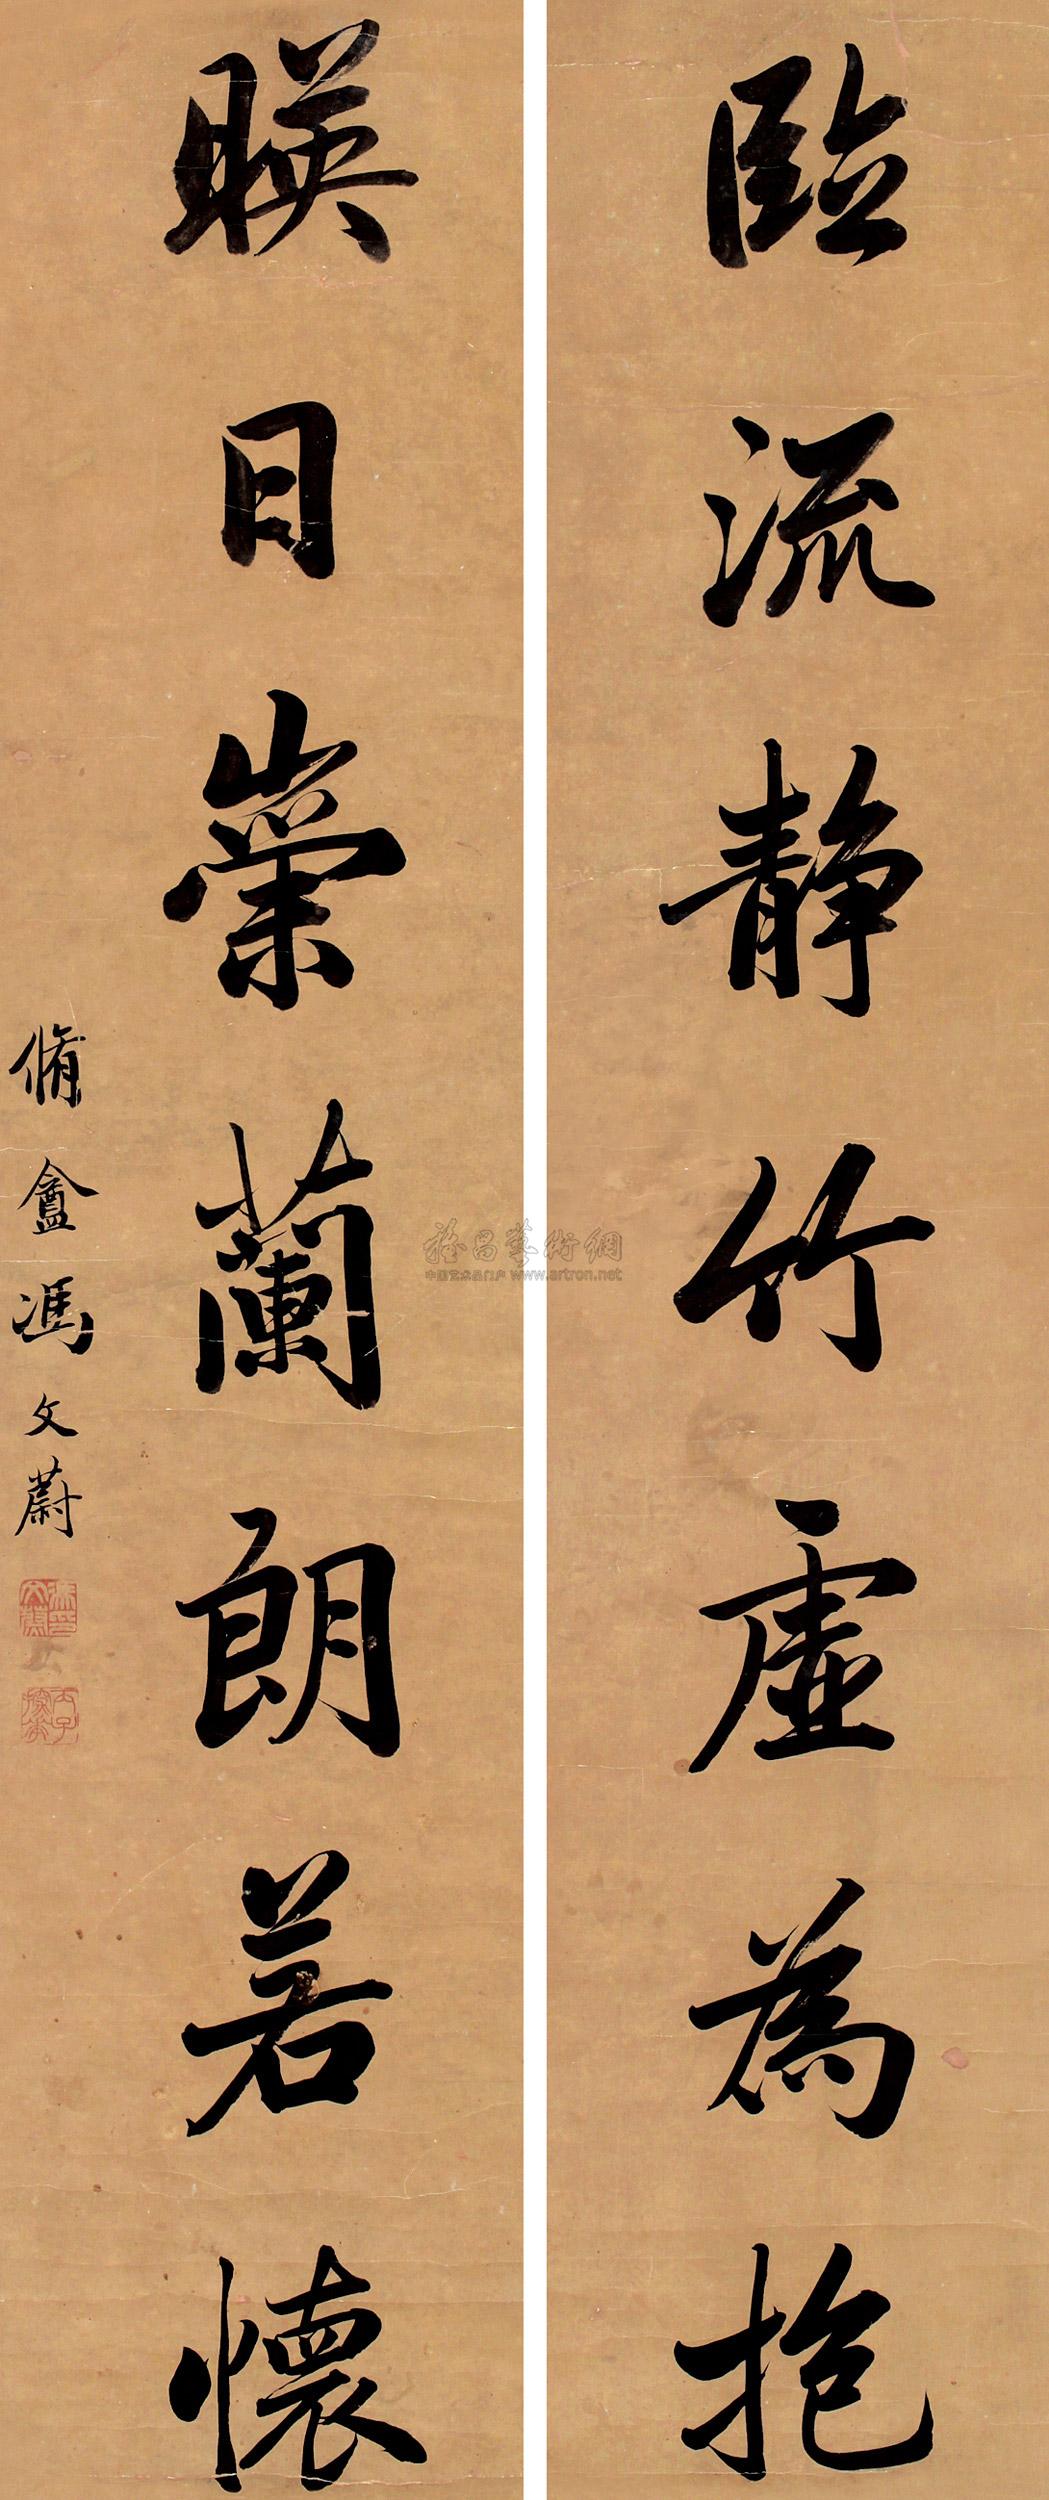 臨流靜竹虛為抱
暎日崇蘭朗若懷
脩盫馮文蔚
雅昌藝術網
中国艺术品门户 www.artron.net